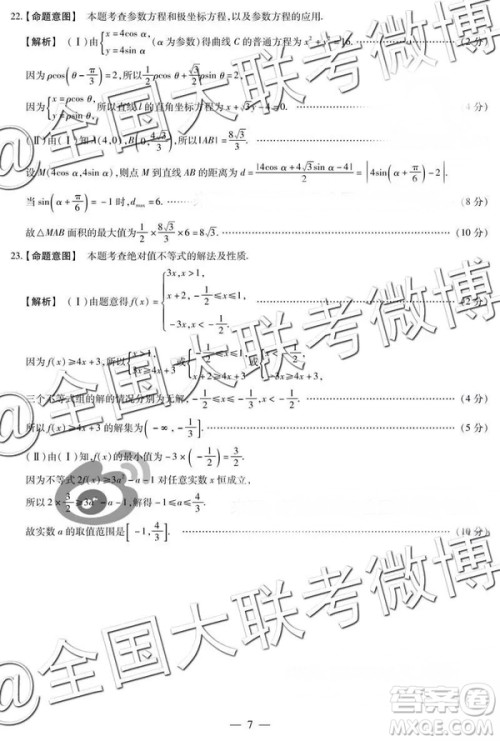 22.【命题意图】 本题考查参数方程和极坐标方程,以及参数方程的应用.
【解析】 (Ⅰ)由{x=4cos α, y=4sin α (α 为参数)得曲线 C 的普通方程为 x²+y²=16. (2 分)
因为 ρcos(θ-π/3)=2,所以 1/2 ρcos θ+√3/2 ρsin θ=2,
因为{x=ρcos θ, y=ρsin θ, 所以直线 l 的直角坐标方程为 x+√3y-4=0. 4 分)
(Ⅱ)由(Ⅰ)知 A(4,0),B(0,4√3/3),所以|AB|=8√3/3.
设 M(4cos α,4sin α),则点 M 到直线 AB 的距离为 d=|4cos α+4√3sin α-4|/2=|4sin(α+π/6)-2|.
当 sin(α+π/6)=-1 时,dmax=6. (8 分)
故△MAB 面积的最大值为 1/2×8√3/3×6=8√3. (10 分)
23.【命题意图】 本题考查绝对值不等式的解法及性质.
【解析】 (Ⅰ)由题意得 f(x)={3x,x>1, x+2,-1/2≤x≤1, -3x,x<-1/2. (2 分)
因为 f(x)≥4x+3,所以{x>1, 3x≥4x+3 或{-1/2≤x≤1, x+2≥4x+3 或{x<-1/2, -3x≥4x+3.
三个不等式组的解的情况分别为无解,-1/2≤x≤-1/3,x<-1/2. (4 分)
所以 f(x)≥4x+3 的解集为(-∞,-1/3]. (5 分)
(Ⅱ)由(Ⅰ)知,f(x)的最小值为-3×(-1/2)=3/2.
因为不等式 2f(x)≥3a²-a-1 对任意实数 x 恒成立,
所以 2×3/2≥3a²-a-1,解得-1≤a≤4/3.
故实数 a 的取值范围是[-1,4/3]. (10 分)
— 7 —
@全国大联考微博
@全国大联考微博
@全国大联考微博
答案圈
MXQE.COM